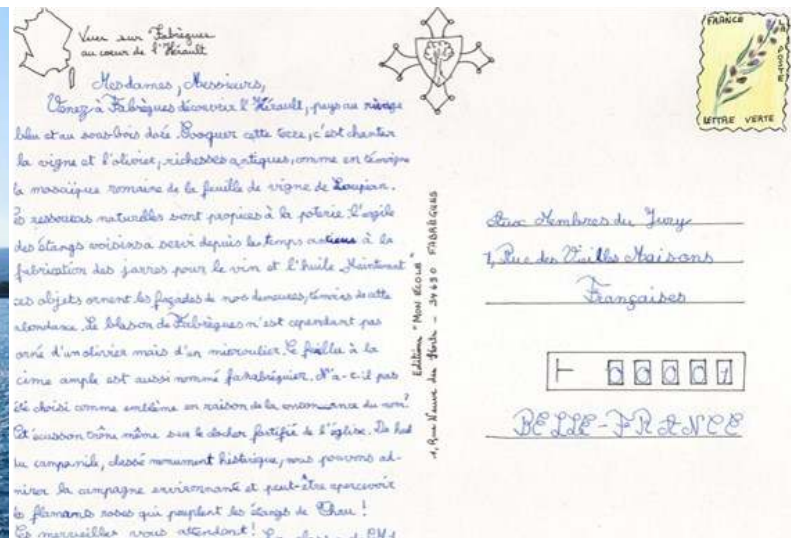 Vues sur Fabrègues
au coeur de l'Hérault
Mesdames, Messieurs,
Venez à Fabrègues découvrir l'Hérault, pays au rivage
bleu et au sous-bois doré. Evoquer cette terre, c'est chanter
la vigne et l'olivier, richesses antiques, comme en témoigne
la mosaïque romaine de la feuille de vigne de Loupian.
ressources naturelles sont propices à la poterie. L'argile
des étangs voisins a servi depuis les temps anciens à la
fabrication des jarres pour le vin et l'huile. Maintenant
ces objets ornent les façades de nos demeures, témoins de cette
abondance. Le blason de Fabrègues n'est cependant pas
orné d'un olivier mais d'un micocoulier. Ce feuillu à la
cime ample est aussi nommé fanabréguier. N'a-t-il pas
été choisi comme emblème en raison de la consonance du nom?
Cet écusson trône même sur le clocher fortifié de l'église. Du haut
du campanile, classé monument historique, nous pouvons ad-
mirer la campagne environnante et peut-être apercevoir
les flamants roses qui peuplent les étangs de Thau!
Ces merveilles vous attendent! La classe de
Editions "MON ÉCOLE"
1, Rue Neuve des Horts - 34690 FABRÈGUES
FRANCE
LA POSTE
LETTRE VERTE
Aux Membres du Jury
1, Rue des Vieilles Maisons
Françaises
00001
BELLE-FRANCE